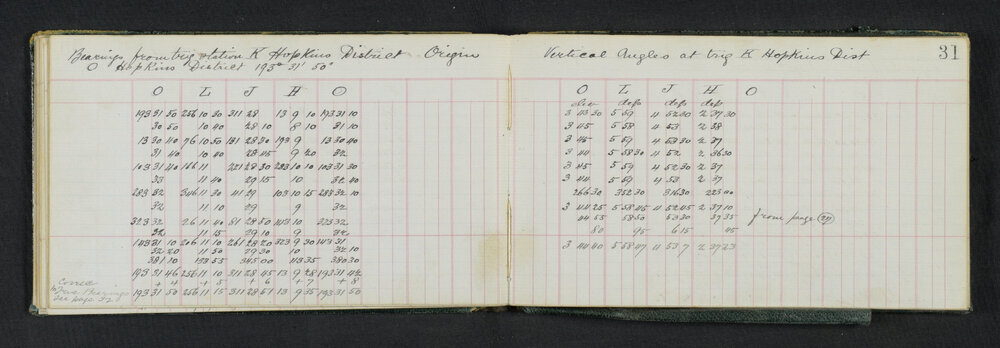 Bearings from trig station K Hopkins District Origin
O Hopkins District 193° 31' 50"
O L J H O
193 31 50 256 10 30 311 28 13 9 10 193 31 10
30 50 10 40 28 10 8 10 31 10
13 30 40 76 10 50 131 28 30 193 9 13 30 40
31 40 10 40 28 45 9 20 32
103 31 40 166 11 221 28 30 283 10 10 103 31 30
33 11 40 29 15 10 32 40
283 32 346 11 30 41 29 103 10 15 283 32 10
32 11 10 29 9 32
323 32 26 11 40 81 28 50 143 10 323 32
32 11 15 29 10 9 32
143 31 10 206 11 10 261 28 20 323 9 30 143 31
32 20 11 50 29 30 10 32 10
381 10 133 55 345 00 113 35 380 30
193 31 46 256 11 10 311 28 45 13 9 28 193 31 42
+ 4 + 5 + 6 + 7 + 8
193 31 50 256 11 15 311 28 51 13 9 35 193 31 50
Correct
True Bearings
see page 32
Vertical Angles at trig K Hopkins Dist 31
O L J H O
elev deps deps deps
3 43 30 5 59 4 52 00 2 37 30
3 45 5 58 4 53 2 38
3 45 5 59 4 53 30 2 37
3 44 5 58 30 4 52 2 36 30
3 45 5 59 4 52 30 2 37
3 44 5 59 4 53 2 37
266 30 352 30 316 30 223 00
3 44 25 5 58 45 4 52 45 2 37 10
44 55 58 50 53 30 37 35 from page 27
80 95 6 15 45
3 44 40 5 58 47 4 53 7 2 37 23